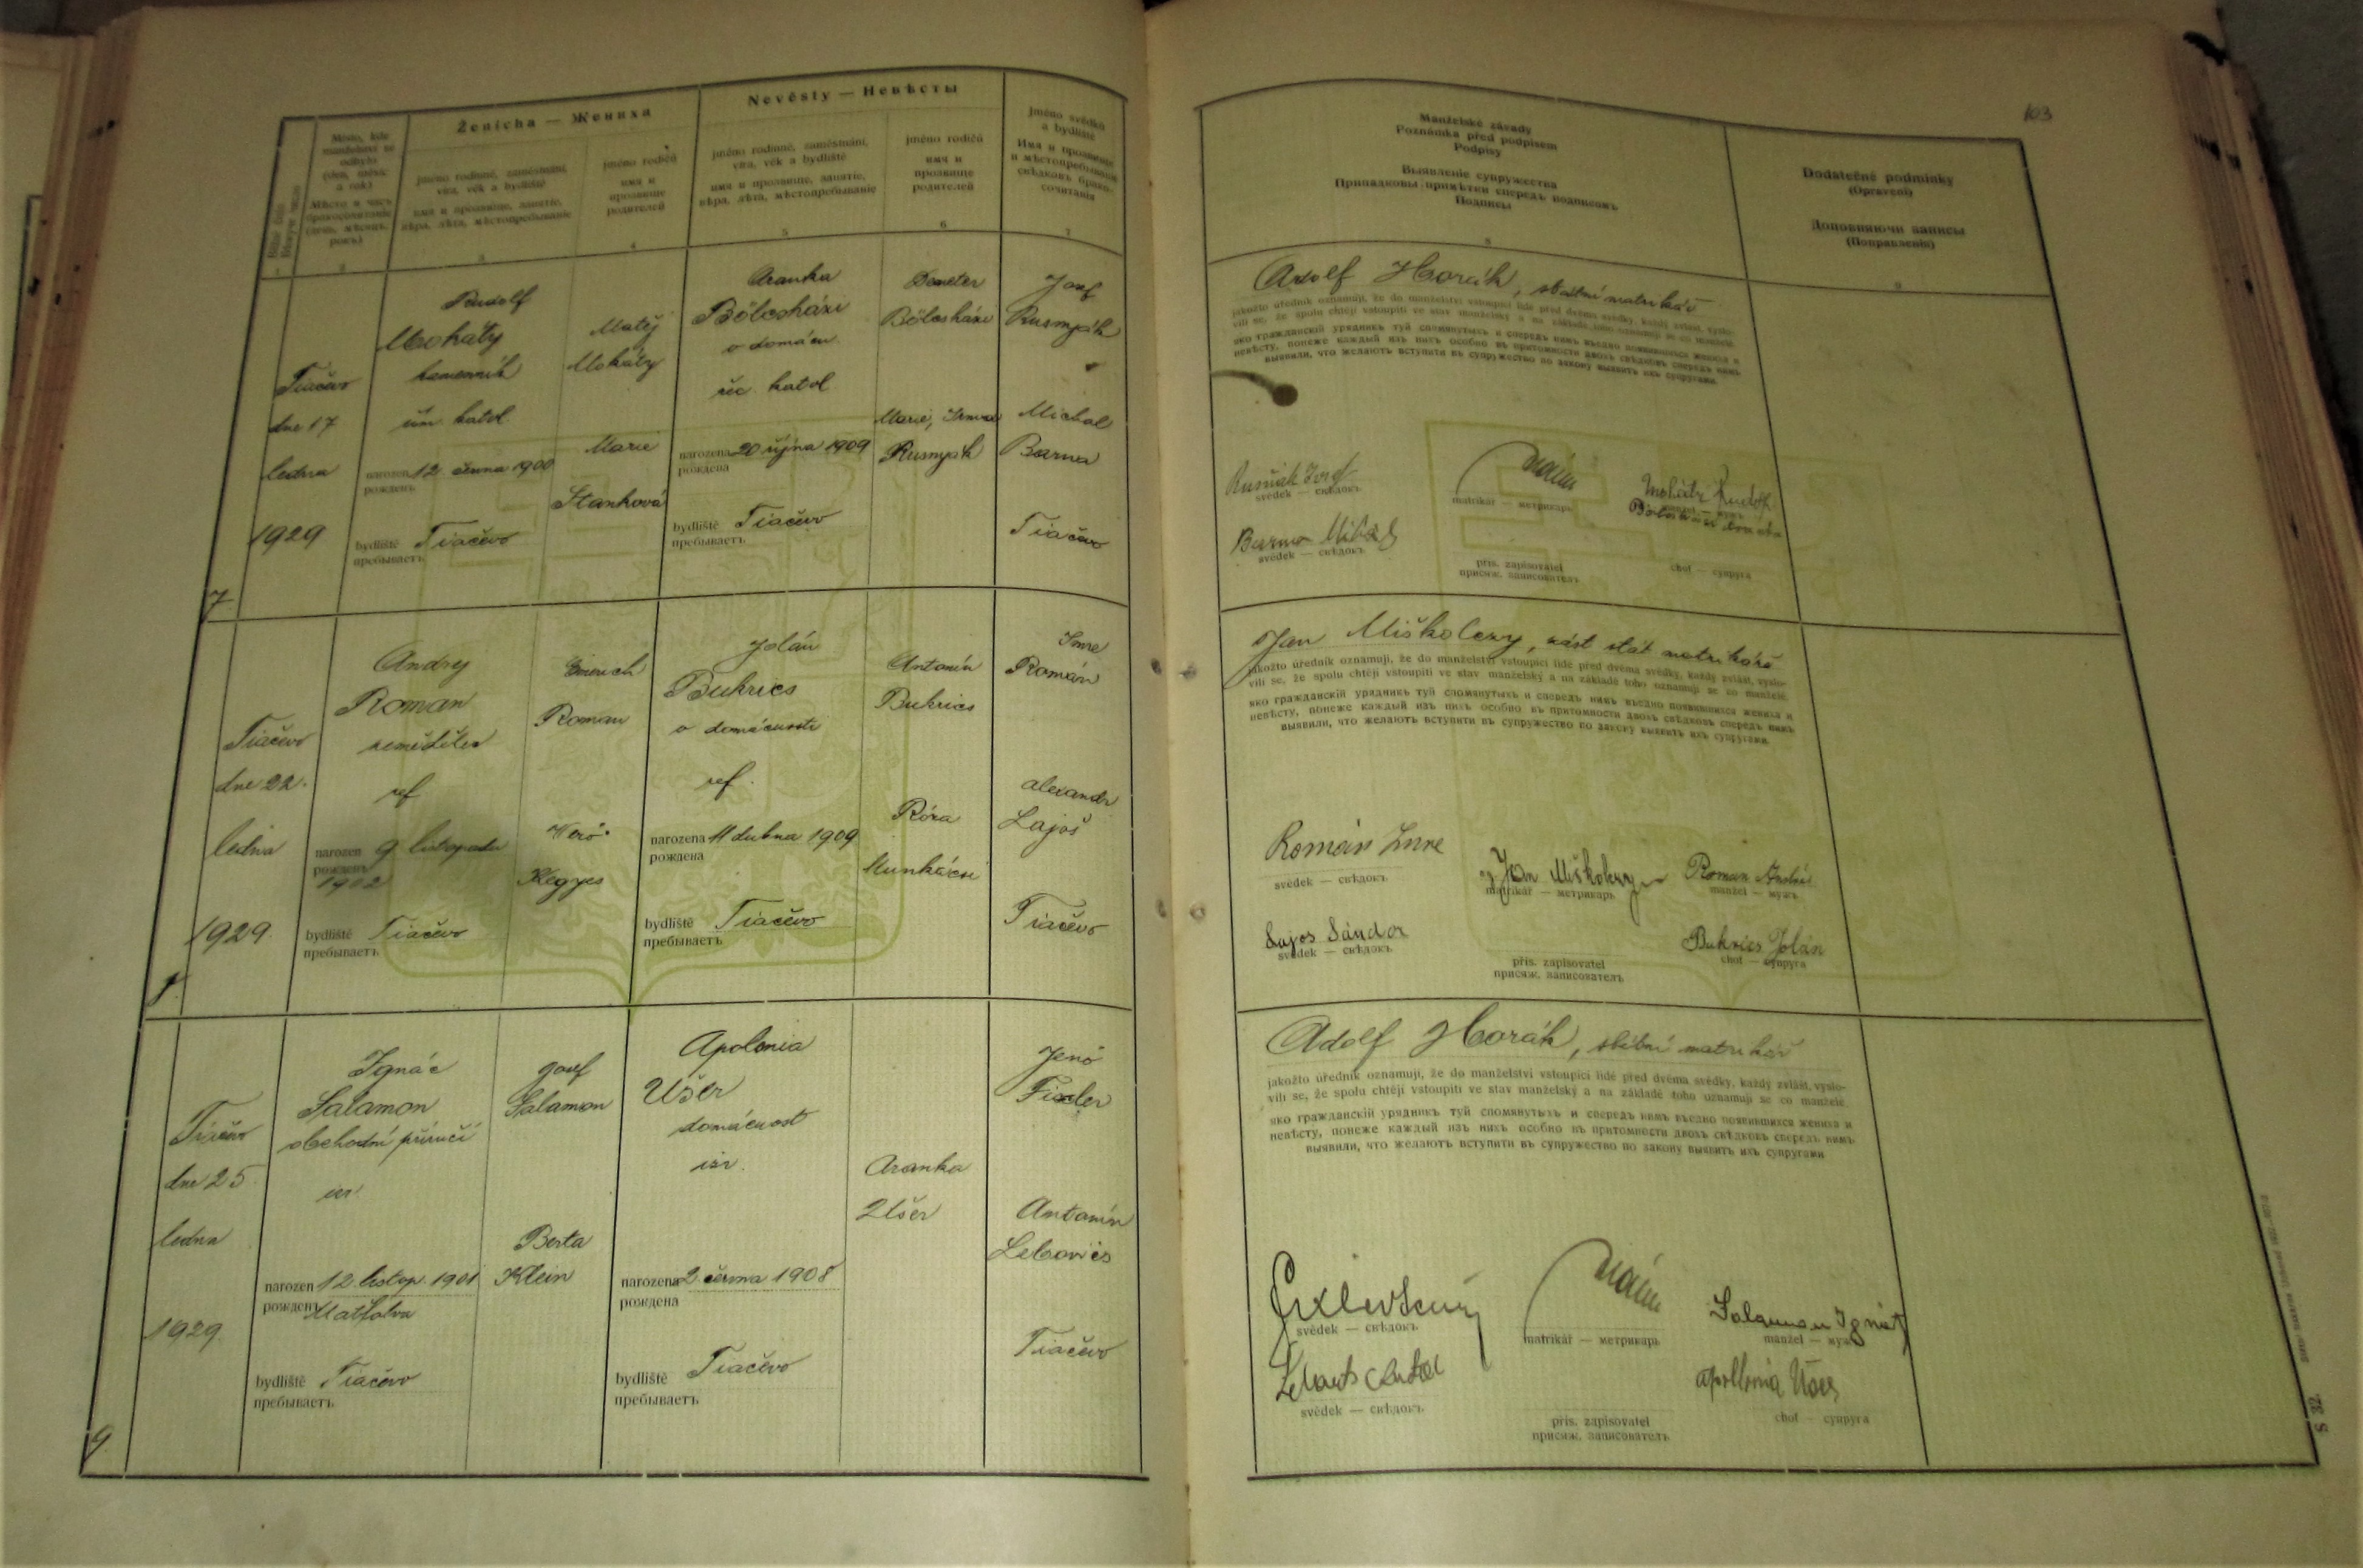 103
Ženicha — Жениха
Nevěsty — Невѣсты
Místo, kde
manželství se
odbylo
(den, měsíc
a rok)
Мѣсто и часъ
бракосочетанія
(день, мѣсяцъ,
рокъ)
jméno rodinné, zaměstnání,
víra, věk a bydliště
имя и прозвище, занятіе,
вѣра, лѣта, мѣстопребываніе
3
jméno rodičů
имя и
прозвище
родителей
4
jméno rodinné, zaměstnání,
víra, věk a bydliště
имя и прозвище, занятіе,
вѣра, лѣта, мѣстопребываніе
5
jméno rodičů
имя и
прозвище
родителей
6
jméno svědků
a bydliště
Имя и прозвище
и мѣстопребываніе
свѣдковъ брако-
сочитанія
7
Manželské závady
Poznámka před podpisem
Podpisy
Выявленіе супружества
Припадковы примѣтки спередъ подписомъ
Подписы
8
Dodatečné podmínky
(Opravení)
Доповняючи записы
(Поправленія)
9
7
Tiačevo
dne 17
ledna
1929
Rudolf
Moháty
kamenník
řím. katol.
narozen 12. června 1900
рожденъ
bydliště Tiačevo
пребываетъ
Matěj
Moháty
Marie
Stanková
Aranka
Bölcsházi
v domácn.
řec. katol
narozena 20 října 1909
рождена
bydliště Tiačevo
пребываетъ
Demeter
Bölcsházi
Marie, Irma
Rusnyák
Josef
Rusnyák
Michal
Barna
Tiačevo
Adolf Horák, státní matrikář
jakožto úředník oznamuji, že do manželství vstoupící lidé před dvěma svědky, každý zvlášt, vyslo-
vili se, že spolu chtějí vstoupiti ve stav manželský a na základě toho oznamuji se co manželé.
яко гражданскій урядникъ туй спомянутыхъ и спередъ нимъ въедно появившихся жениха и
невѣсту, понеже каждый изъ нихъ особно въ притомности двохъ свѣдковъ спередъ нимъ
выявили, что желаютъ вступити въ супружество по закону выявить ихъ супругами.
svědek — свѣдокъ
matrikář — метрикарь
manžel — мужъ
Barna Mihály
svědek — свѣдокъ
přís. zapisovatel
присяж. записователъ
choť — супруга
8
Tiačevo
dne 22.
ledna
1929.
Andrej
Roman
zemědělec
ref
narozen 9. listopadu
рожденъ
1902
bydliště Tiačevo
пребываетъ
Emerich
Roman
Veró
Hegyes
Jolán
Bukrics
v domácnosti
ref.
narozena 11 dubna 1909
рождена
bydliště Tiačevo
пребываетъ
Antonín
Bukrics
Róza
Munkácsi
Imre
Román
Alexandr
Lajoš
Tiačevo
Jan Miškolczy, zást. stát. matrikáře
jakožto úředník oznamuji, že do manželství vstoupící lidé před dvěma svědky, každý zvlášt, vyslo-
vili se, že spolu chtějí vstoupiti ve stav manželský a na základě toho oznamuji se co manželé.
яко гражданскій урядникъ туй спомянутыхъ и спередъ нимъ въедно появившихся жениха и
невѣсту, понеже каждый изъ нихъ особно въ притомности двохъ свѣдковъ спередъ нимъ
выявили, что желаютъ вступити въ супружество по закону выявить ихъ супругами.
Román Imre
svědek — свѣдокъ
Jan Miškolczy
matrikář — метрикарь
Roman András
manžel — мужъ
Lajos Sándor
svědek — свѣдокъ
přís. zapisovatel
присяж. записователъ
Bukrics Jolán
choť — супруга
9
Tiačevo
dne 25.
ledna
1929.
Ignác
Salamon
obchodní příručí
isr.
narozen 12. listop. 1901
рожденъ
bydliště Tiačevo
пребываетъ
Josef
Salamon
Berta
Klein
Apolonia
Ušer
domácnost
isr.
narozena 2. června 1908
рождена
bydliště Tiačevo
пребываетъ
Aranka
Ušer
Jenö
Fixler
Antonín
Lebovics
Tiačevo
Adolf Horák, státní matrikář
jakožto úředník oznamuji, že do manželství vstoupící lidé před dvěma svědky, každý zvlášt, vyslo-
vili se, že spolu chtějí vstoupiti ve stav manželský a na základě toho oznamuji se co manželé.
яко гражданскій урядникъ туй спомянутыхъ и спередъ нимъ въедно появившихся жениха и
невѣсту, понеже каждый изъ нихъ особно въ притомности двохъ свѣдковъ спередъ нимъ
выявили, что желаютъ вступити въ супружество по закону выявить ихъ супругами
svědek — свѣдокъ
matrikář — метрикарь
Salamon Ignátz
manžel — мужъ
svědek — свѣдокъ
přís. zapisovatel
присяж. записователъ
choť — супруга
S 32.